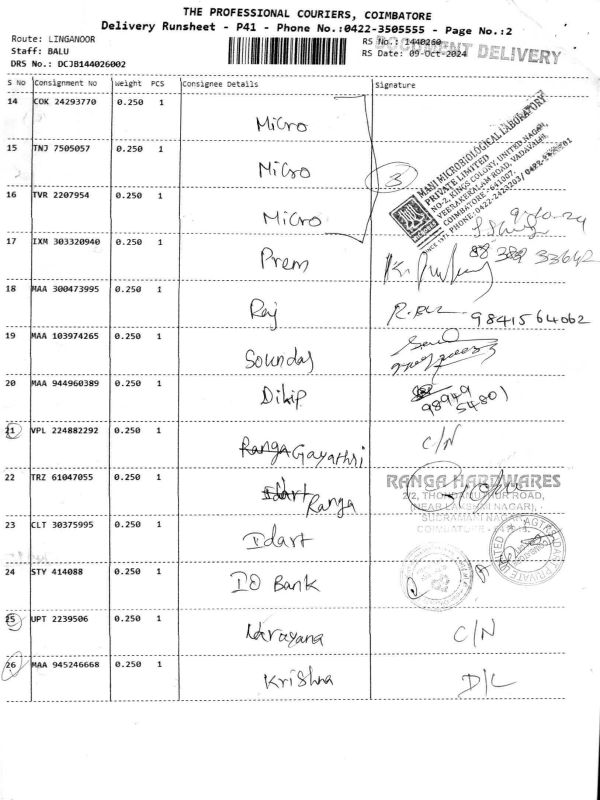 THE PROFESSIONAL COURIERS, COIMBATORE
Delivery Runsheet - P41 - Phone No.:0422-3505555 - Page No.:2
Route: LINGANOOR
RS No.: 1440260
DOCUMENT DELIVERY
Staff: BALU
RS Date: 09-Oct-2024
DRS No.: DCJB144026002
S No Consignment No Weight PCS Consignee Details Signature
14 COK 24293770 0.250 1 Micro
15 TNJ 7505057 0.250 1 Micro
3
MANI MICROBIOLOGICAL LABORATORY
PRIVATE LIMITED
NO-2, KINGS COLONY, UNITED NAGAR,
VEERAKERALAM ROAD, VADAVALLI,
COIMBATORE - 641007.
SINCE 1971
16 TVR 2207954 0.250 1 Micro
9/10-24
17 IXM 303320940 0.250 1 Prem
33642
18 MAA 300473995 0.250 1 Raj
9841564062
19 MAA 103974265 0.250 1
20 MAA 944960389 0.250 1 Dilip
98949
54801
21 VPL 224882292 0.250 1 Ranga Gayathri C/N
22 TRZ 61047055 0.250 1 Idart Ranga
RANGA HARDWARES
23 CLT 30375995 0.250 1 Idart
24 STY 414088 0.250 1 IO Bank
25 UPT 2239506 0.250 1 Narayana C/N
26 MAA 945246668 0.250 1 Krishna D/L